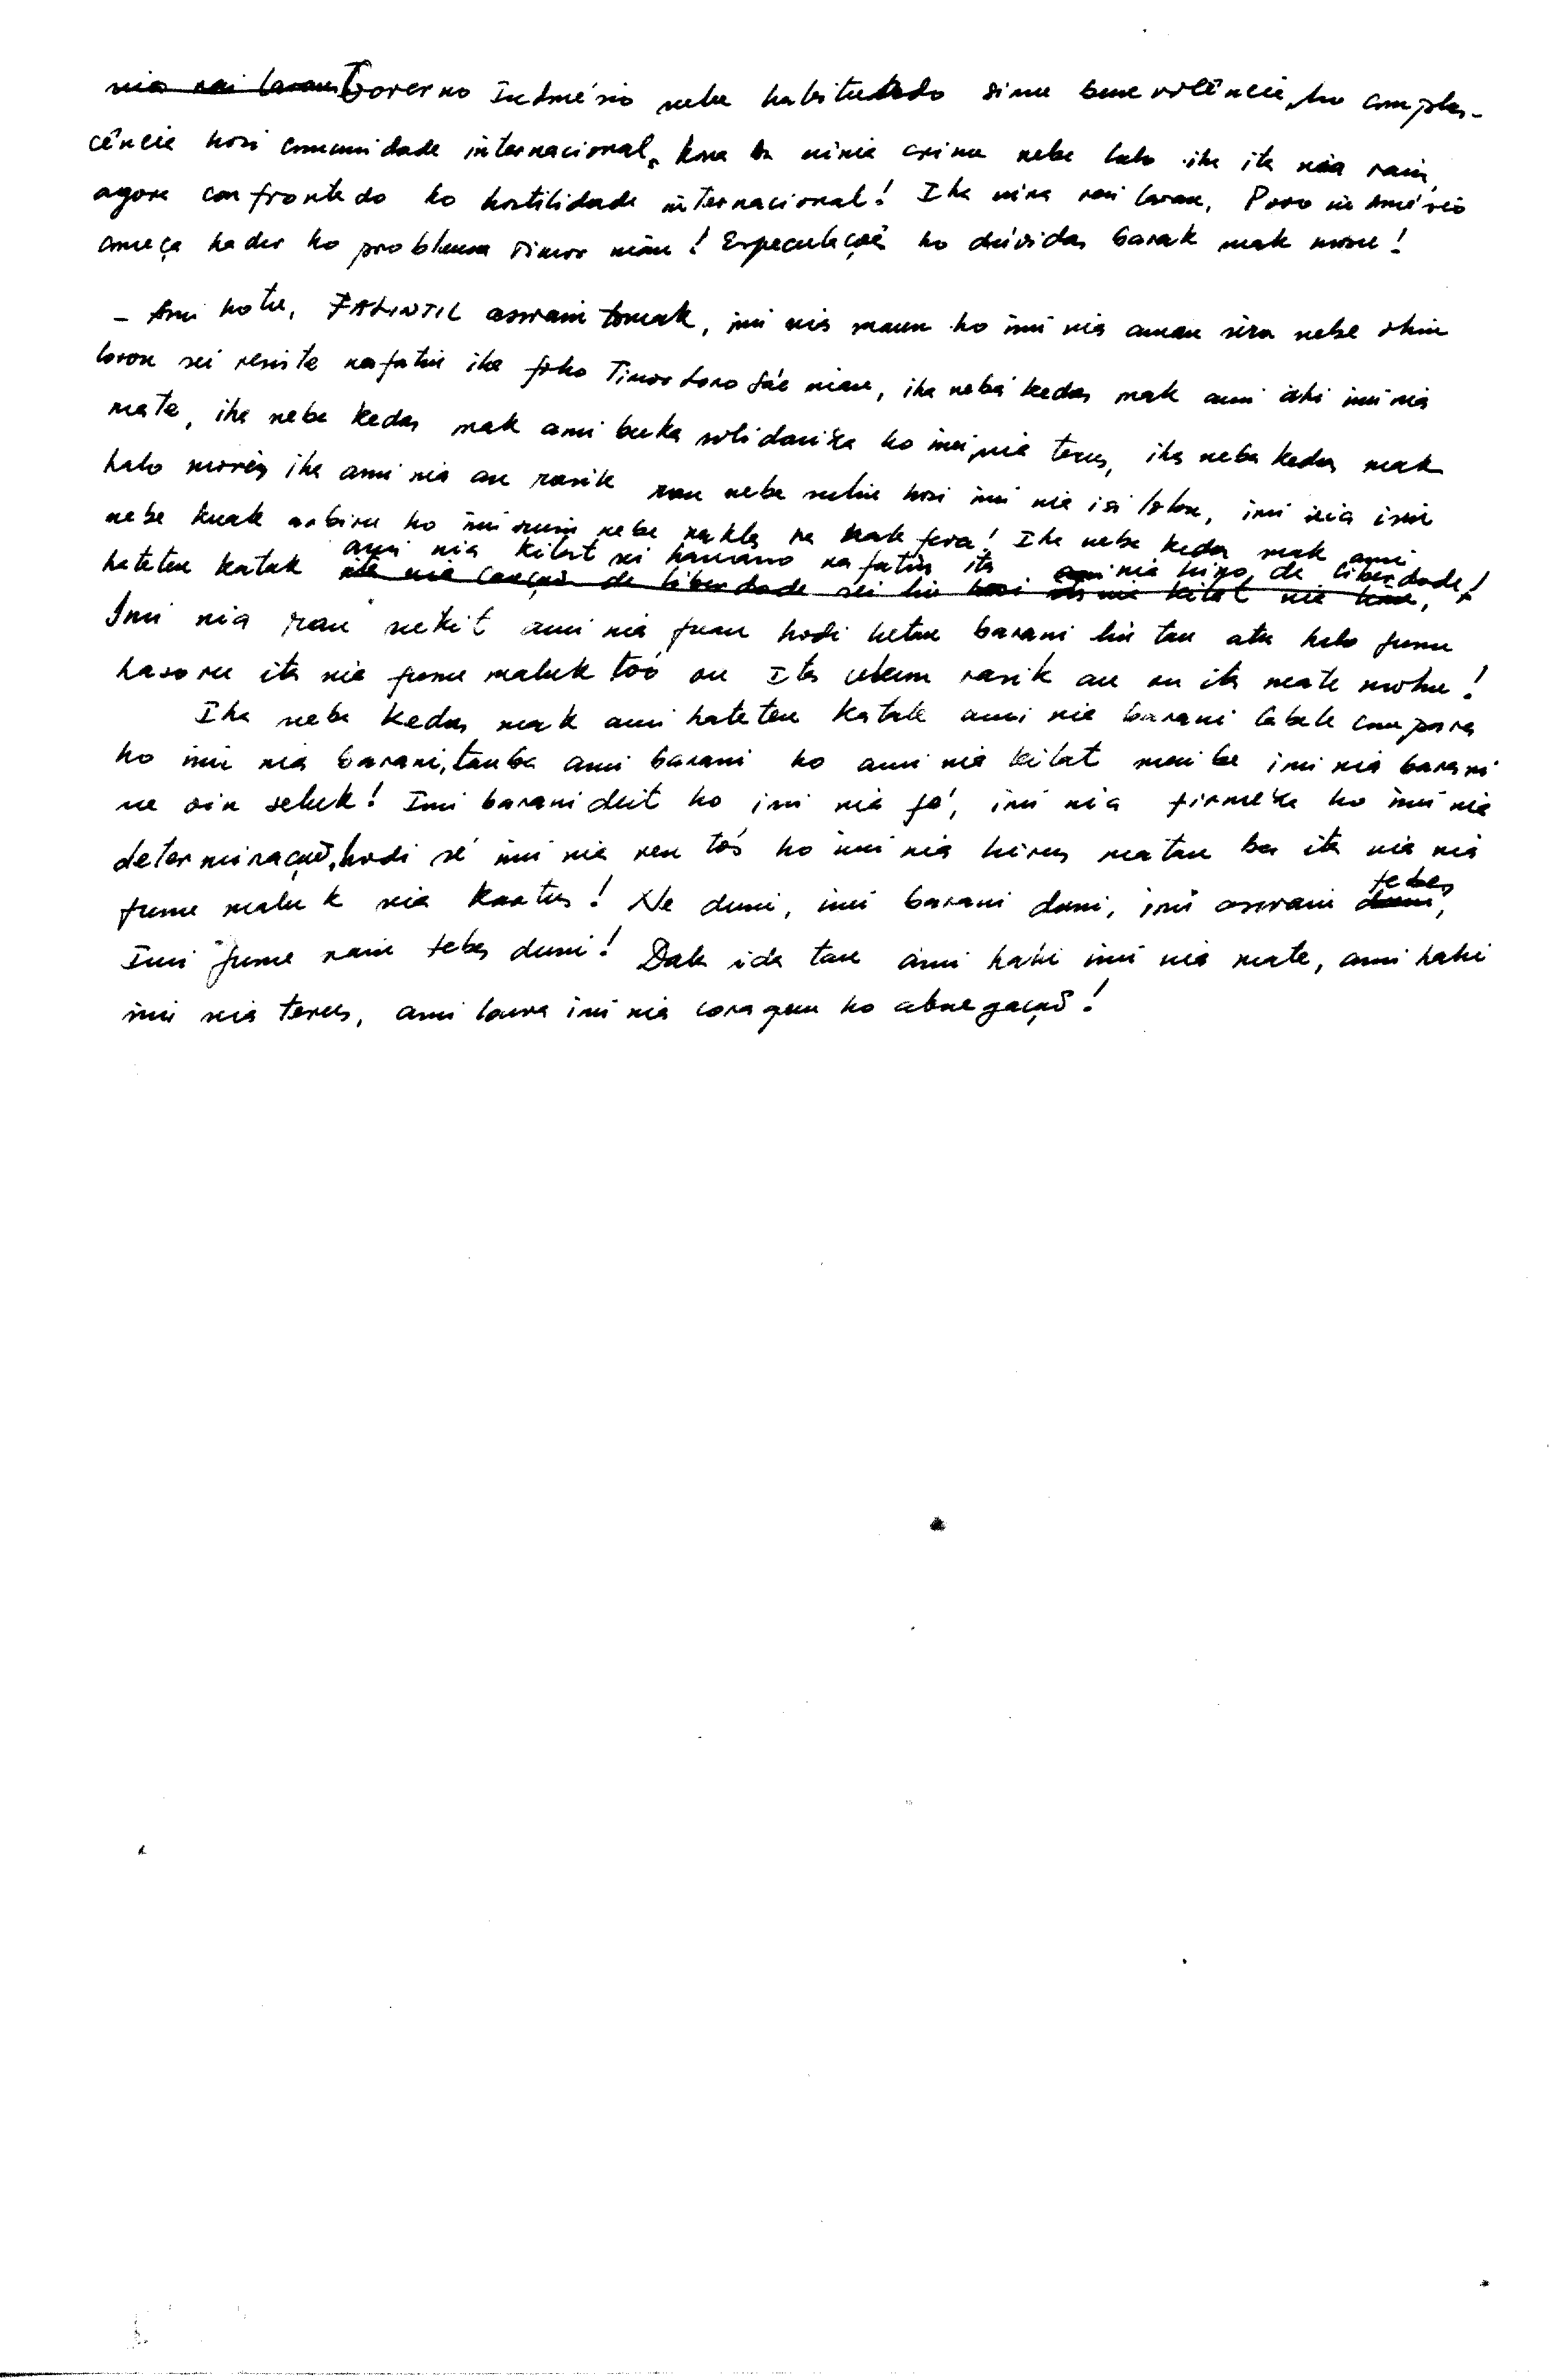 nia rai laran Governo Indonésio nebe habituado simu benevolência, ho complas-
cência hosi comunidade internacional, kona ba ninia crime nebe halo iha ita nia rain,
agora confrontado ho hostilidade internacional! Iha nina rai laran, Povo indonésio
começa hader ho problema Timor nian! Especulaçoēs ho dúvidas barak mak mosu!
- Ami hotu, FALINTIL asswain tomak, imi nia maun ho imi nia aman sira nebe ohin
loron sei resiste nafatin iha foho Timor Loro Sáe nian, iha nebá kedas mak ami ahi imi nia
mate, iha nebe kedas mak ami buka solidariza ho imi nia terus, iha neba kedas mak
halo moris iha ami nia an rasik ran nebe sulin hosi imi nia isi lolon, imi nia isin
nebe kuak ho imi ruin nebe nakles no nak fera! Iha nebe kedas mak ami
ami nia kilat sei hananu nafatin ita nia hino de liberdade!
hateten katak ita nia canção de liberdade sei hosi nia kilat nia
Imi nia ran nekit ami nia fuan hodi hetan barani liu tan atu halo funu
hasoru ita nia funu maluk toó ou Ita ukun rasik an ou ita mate mohu!
Iha nebe kedas mak ami hateten katak ami nia barani labele compara
ho imi nia barani, tanba ami barani ho ami nia kilat mai be imi nia barani
ne oin seluk! Imi barani deit ho imi nia fé, imi nia firmeza ho imi nia
determinação, hodi sé imi nia ren toós ho imi nia hirus matan ba ita nia nia
funu maluk nia kartus! Ne duni, imi barani duni, imi asswain duni,
tebes
Imi funu nain tebes duni! Dala ida tan ami hahi imi nia mate, ami hahi
imi nia terus, ami louva imi nia coragem ho abnegação!